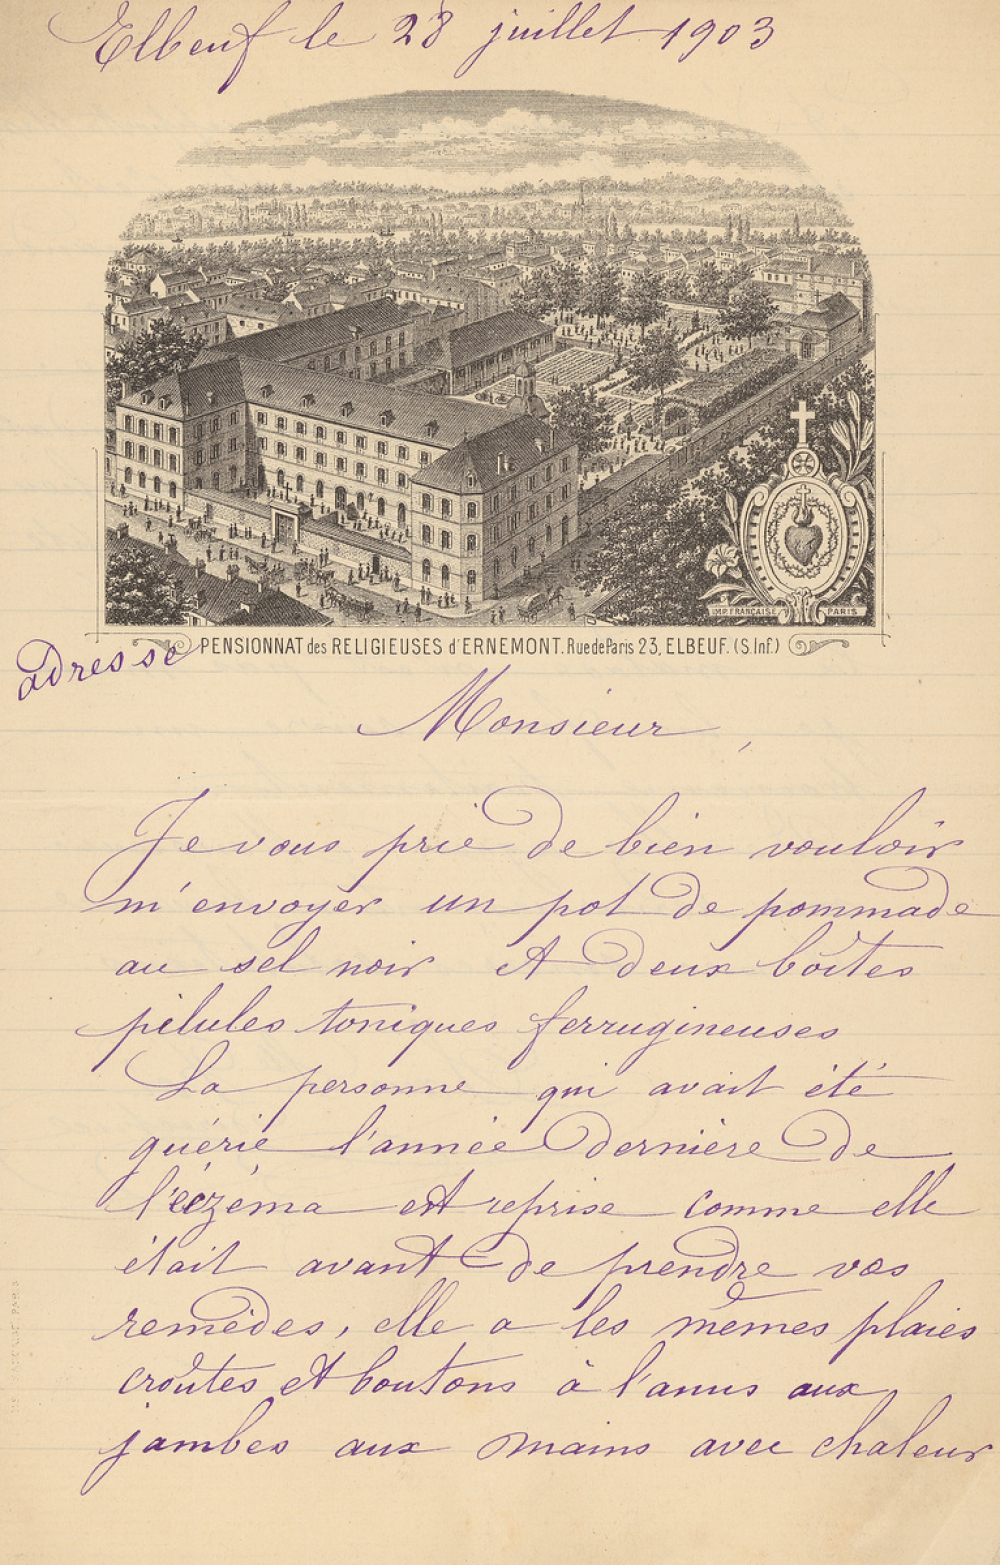 Elbeuf le 28 juillet 1903
IMP. FRANÇAISE PARIS
PENSIONNAT des RELIGIEUSES d'ERNEMONT. Rue de Paris 23, ELBEUF. (S. Inf.)
adresse
Monsieur,
Je vous prie de bien vouloir
m'envoyer un pot de pommade
au sel noir et deux boîtes
pilules toniques ferrugineuses
La personne qui avait été
guérie l'année dernière de
l'éczéma est reprise comme elle
était avant de prendre vos
remèdes, elle a les mêmes plaies
croûtes et boutons à l'anus aux
jambes aux mains avec chaleur